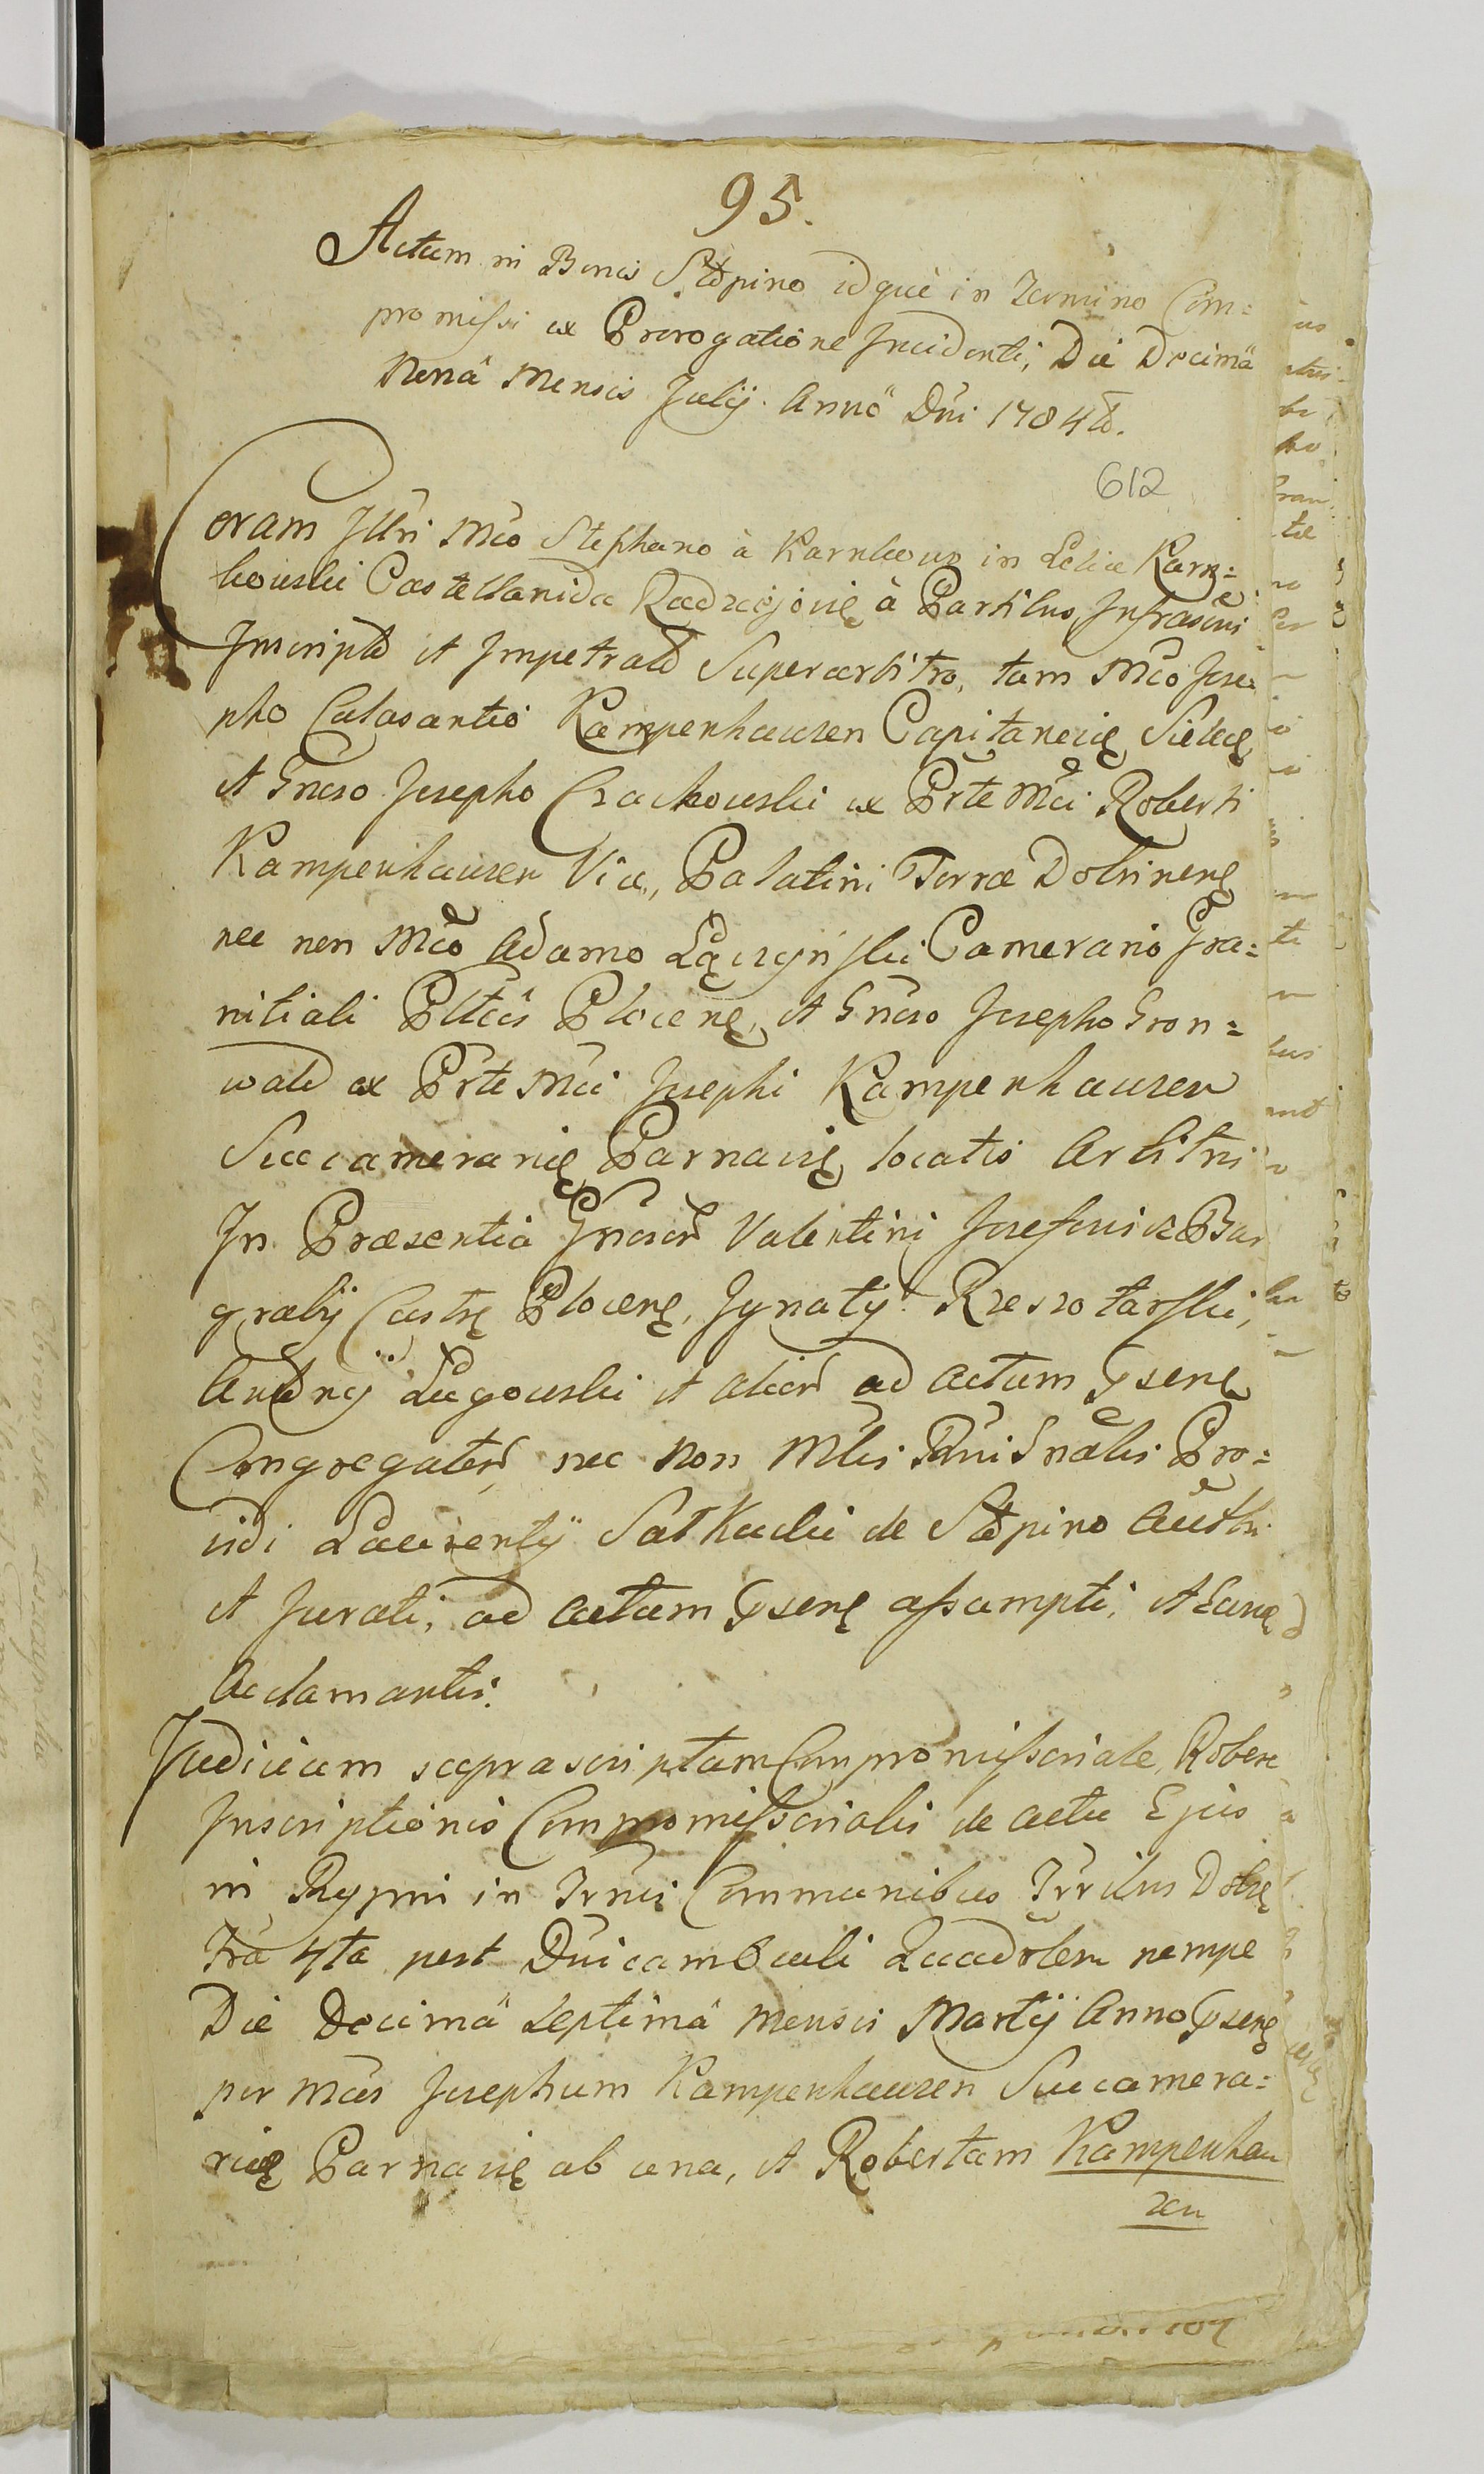 95.
Actum in Bonis Stępino idque in Termino Com=
promissi ex Prorogatione Incidenti, Die Decimâ
Nonâ Mensis Julij Annô Dni 1784tô.
612
Coram Illri Mco Stephano à Karnkow in Lelice Karn=
kowski Castellanida Radziejovię à Partibus Infrascrî
Inscripto et Impetrato Superarbitro, tam Mco Jose
pho Calasantio Kampenhauzen Capitanevię
et Gnoso Josepho Czachowski ex Prte Mci Roberti
Kampenhauzen Vice, Palatini Terræ Dobrinenę
nec non Mco Adamo Łączyński Camerario Gra=
nitiali Pltûs Plocenę, et Gnoso Josepho Gron=
wald ex Prte Mci Josephi Kampenhauzen
Succamerarię Parnavię locatis Arbitri
In Præsentia Gnosor Valentini Josefowicz Bur
grabij Castrę Plocenę, Ignatij Rzeszotarski,
Andreę Ługowski et alior ad actum psenę
Congregator, nec non Mlis Rni Gnalis Pro=
vidi Laurentÿ Satkucki de Stępino Authi
et Jurati, ad actum psenę assumpti, et
Acclamantis.
Judicium suprascriptum Compromissoriale, Robore
Inscriptionis Compromissorialis de actu Ejus
in Rypin in Trnis Communibus Trribus Dobrę
Fra 4ta post Dnicam Oculi Quadrlem nempe
Die Decimâ Septimâ Mensis Martÿ Anno psenę
per Mcos Josephum Kampenhauzen Succamera=
rię Parnavię ab una, et Robertum Kampenhau
zen